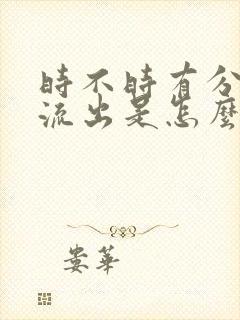 時不時有分
流出是怎麼
娄華